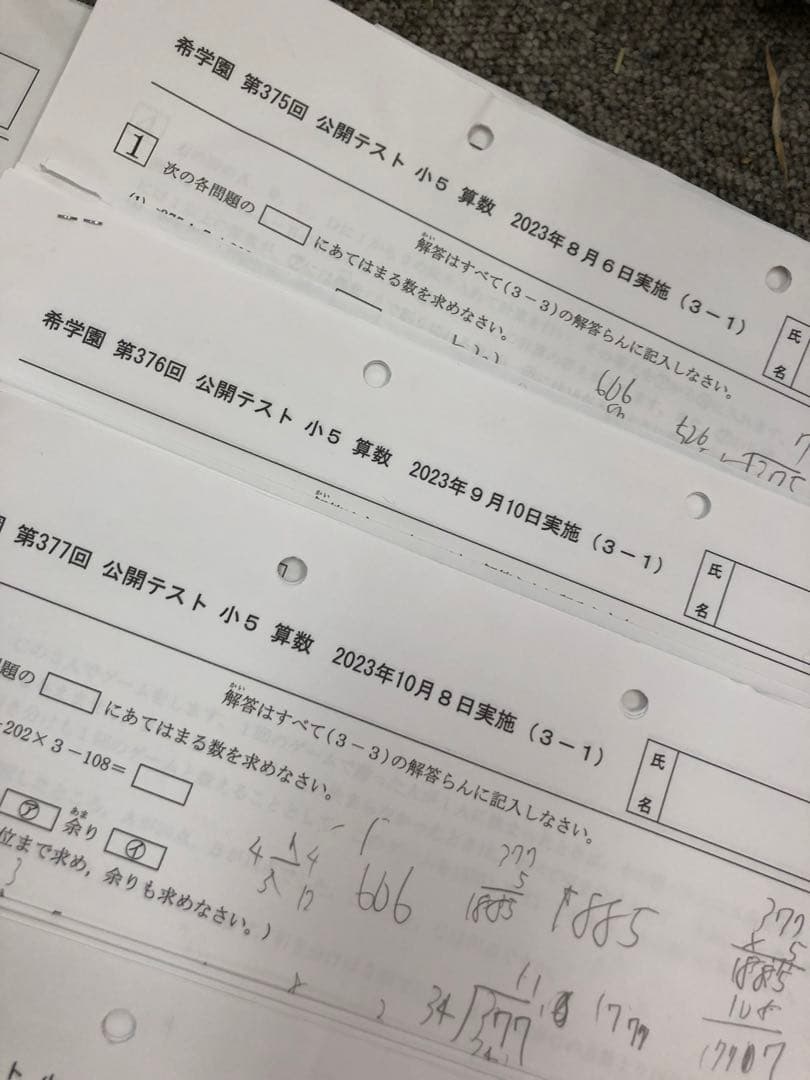 希学園 第375回 公開テスト 小5 算数 2023年8月6日実施(3-1)
氏名
1 次の各問題の□にあてはまる数を求めなさい。
解答はすべて(3-3)の解答らんに記入しなさい。
かい
606
526
希学園 第376回 公開テスト 小5 算数 2023年9月10日実施(3-1)
氏名
かい
第377回 公開テスト 小5 算数 2023年10月8日実施(3-1)
氏名
題の□にあてはまる数を求めなさい。
解答はすべて(3-3)の解答らんに記入しなさい。
かい
202×3-108=□
㋐ 余り ㋑
あま
位まで求め,余りも求めなさい。)
606
377
5
1885
1885
377
× 5
1885
108
34
377
11